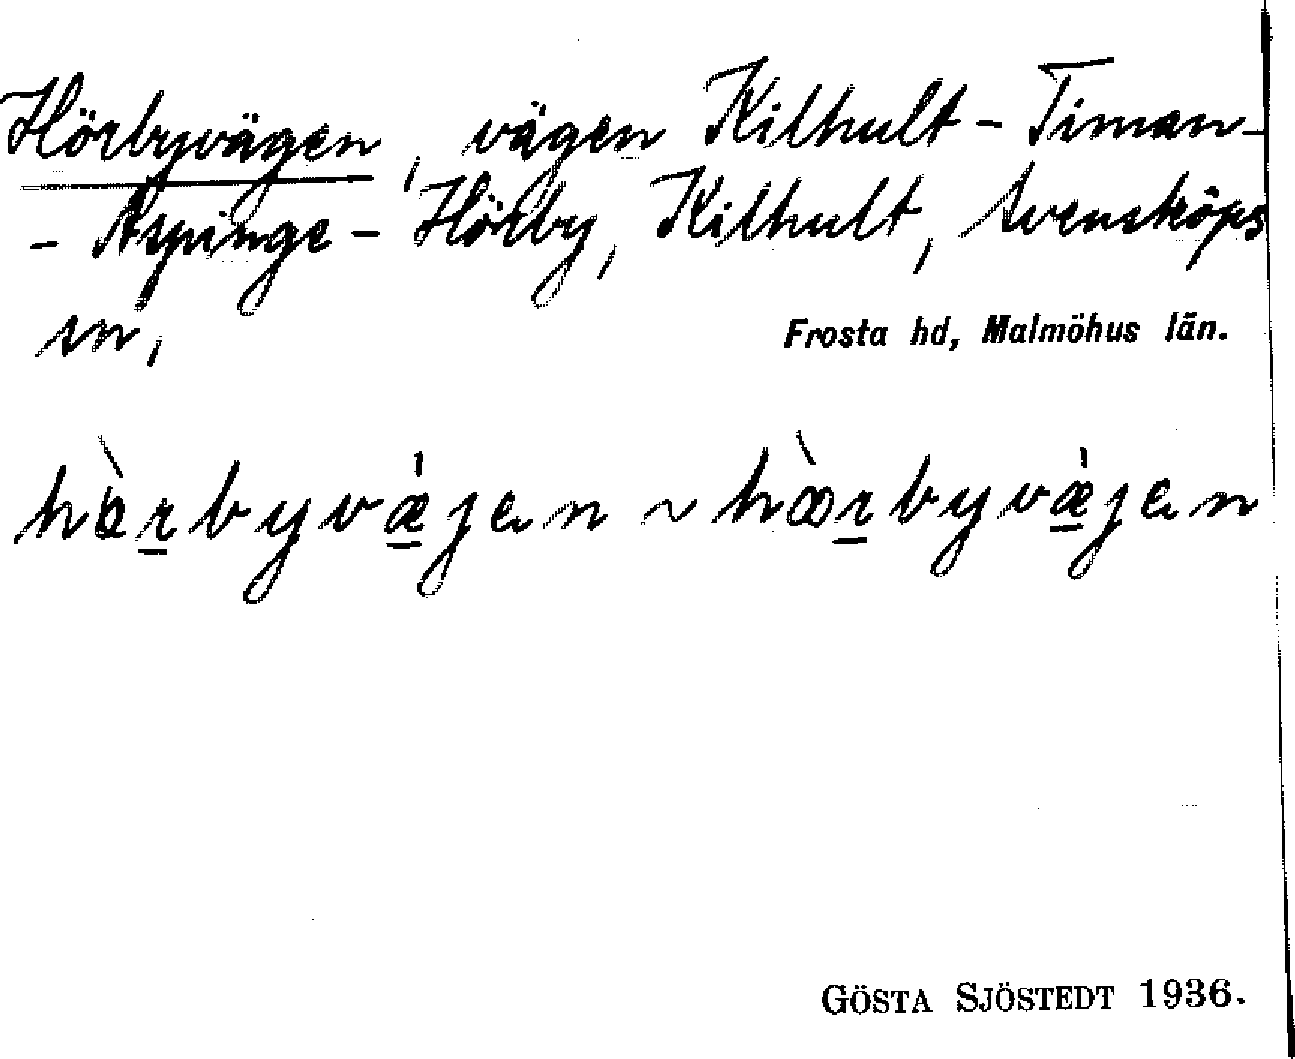 Hörbyvägen, vägen Kilhult - Timan -
- Aspinge - Hörby, Kilhult, Svensköps
sn,
Frosta hd, Malmöhus län.
hòrbyvæ̀jen ~ hòrbyvæ̀jen
GÖSTA SJÖSTEDT 1936.